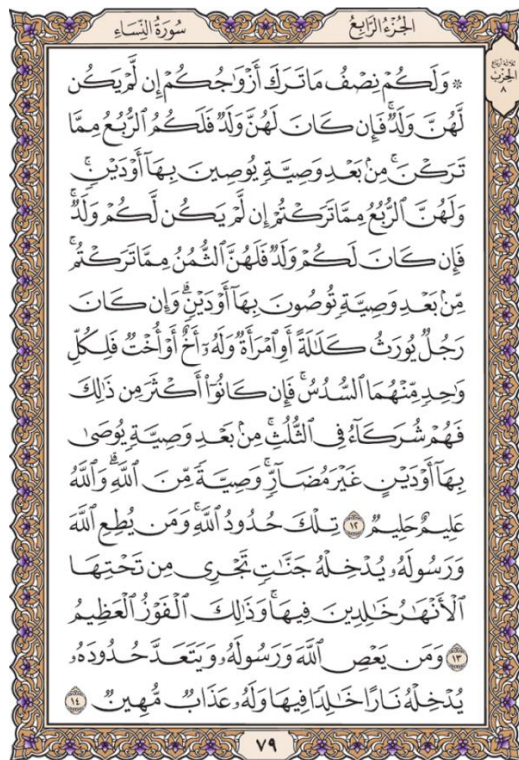 سُورَةُ النِّسَاءِ
الجُزْءُ الرَّابِعُ
ثلاثة أرباع
الحِزْب
٨
۞ وَلَكُمْ نِصْفُ مَا تَرَكَ أَزْوَٰجُكُمْ إِن لَّمْ يَكُن
لَّهُنَّ وَلَدٌۚ فَإِن كَانَ لَهُنَّ وَلَدٌ فَلَكُمُ ٱلرُّبُعُ مِمَّا
تَرَكْنَۚ مِنۢ بَعْدِ وَصِيَّةٍ يُوصِينَ بِهَآ أَوْ دَيْنٍۚ
وَلَهُنَّ ٱلرُّبُعُ مِمَّا تَرَكْتُمْ إِن لَّمْ يَكُن لَّكُمْ وَلَدٌۚ
فَإِن كَانَ لَكُمْ وَلَدٌ فَلَهُنَّ ٱلثُّمُنُ مِمَّا تَرَكْتُمۚ
مِّنۢ بَعْدِ وَصِيَّةٍ تُوصُونَ بِهَآ أَوْ دَيْنٍۗ وَإِن كَانَ
رَجُلٌ يُورَثُ كَلَٰلَةً أَوِ ٱمْرَأَةٌ وَلَهُۥٓ أَخٌ أَوْ أُخْتٌ فَلِكُلِّ
وَٰحِدٍ مِّنْهُمَا ٱلسُّدُسُۚ فَإِن كَانُوٓا۟ أَكْثَرَ مِن ذَٰلِكَ
فَهُمْ شُرَكَآءُ فِى ٱلثُّلُثِۚ مِنۢ بَعْدِ وَصِيَّةٍ يُوصَىٰ
بِهَآ أَوْ دَيْنٍ غَيْرَ مُضَآرٍّۚ وَصِيَّةً مِّنَ ٱللَّهِۗ وَٱللَّهُ
عَلِيمٌ حَلِيمٌ ١٢ تِلْكَ حُدُودُ ٱللَّهِۚ وَمَن يُطِعِ ٱللَّهَ
وَرَسُولَهُۥ يُدْخِلْهُ جَنَّٰتٍ تَجْرِى مِن تَحْتِهَا
ٱلْأَنْهَٰرُ خَٰلِدِينَ فِيهَاۚ وَذَٰلِكَ ٱلْفَوْزُ ٱلْعَظِيمُ
١٣ وَمَن يَعْصِ ٱللَّهَ وَرَسُولَهُۥ وَيَتَعَدَّ حُدُودَهُۥ
يُدْخِلْهُ نَارًا خَٰلِدًا فِيهَا وَلَهُۥ عَذَابٌ مُّهِينٌ ١٤
٧٩